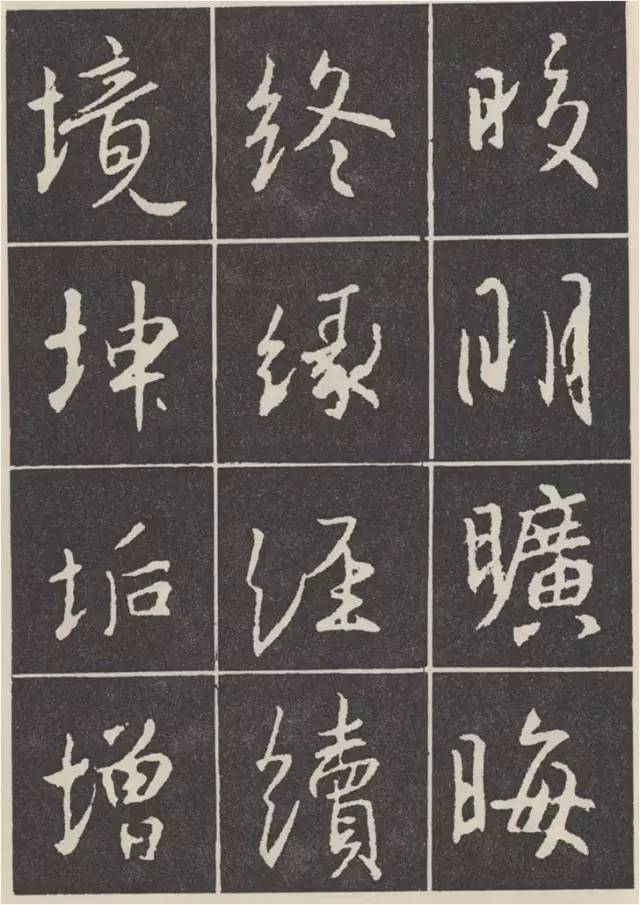 晈明曠晦
終緣經續
境坤垢增